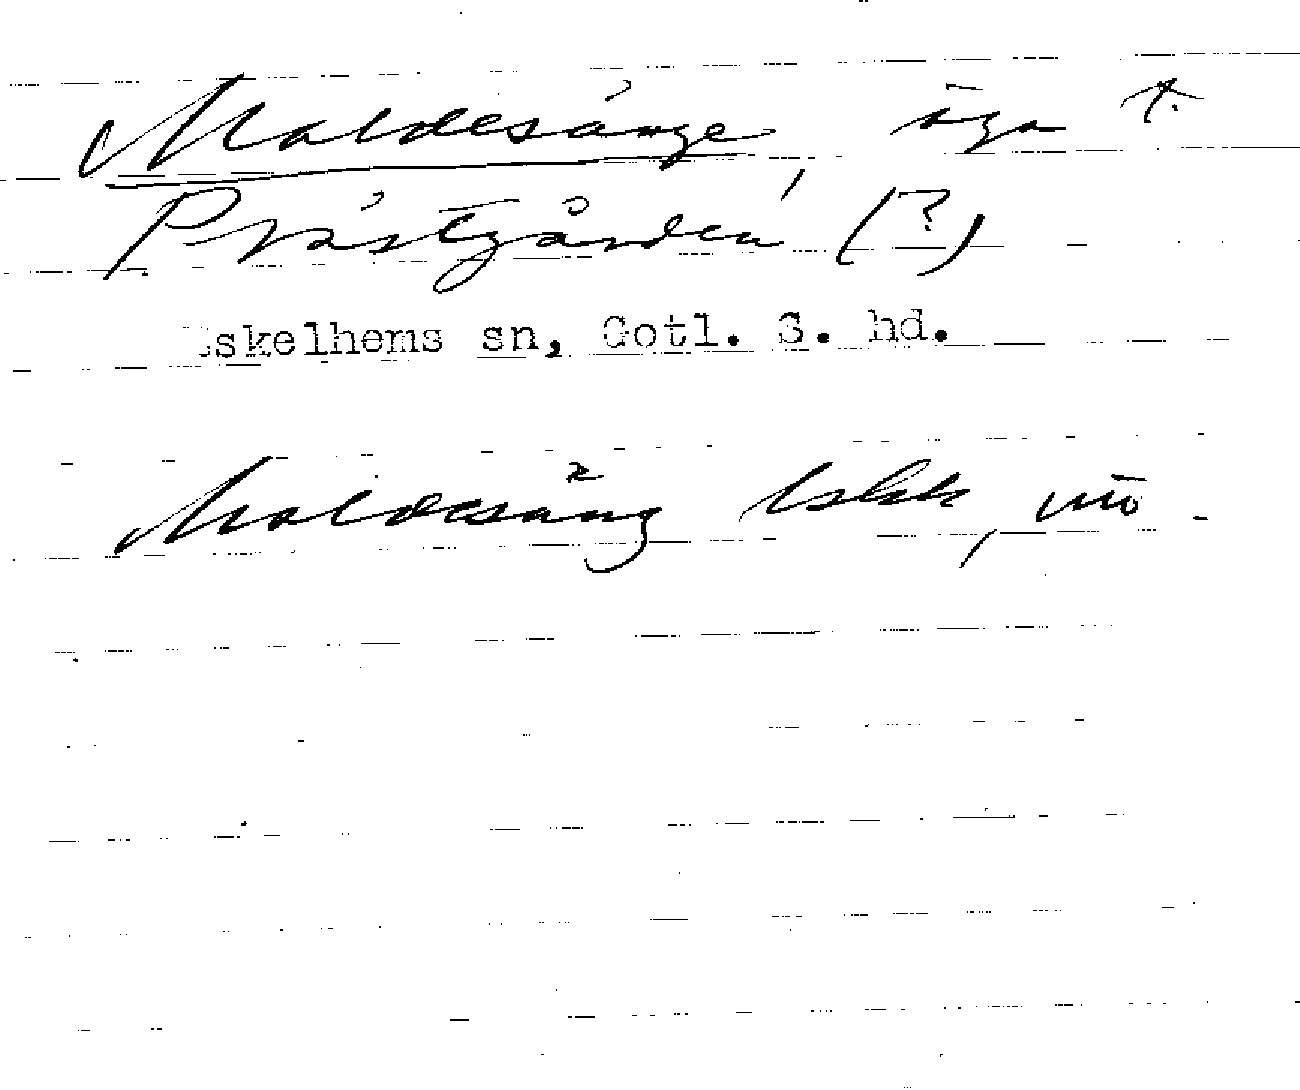 Maldesänge, äga t.
Prästgården (?)
Eskelhems sn, Gotl. S. hd.
Maldesäng